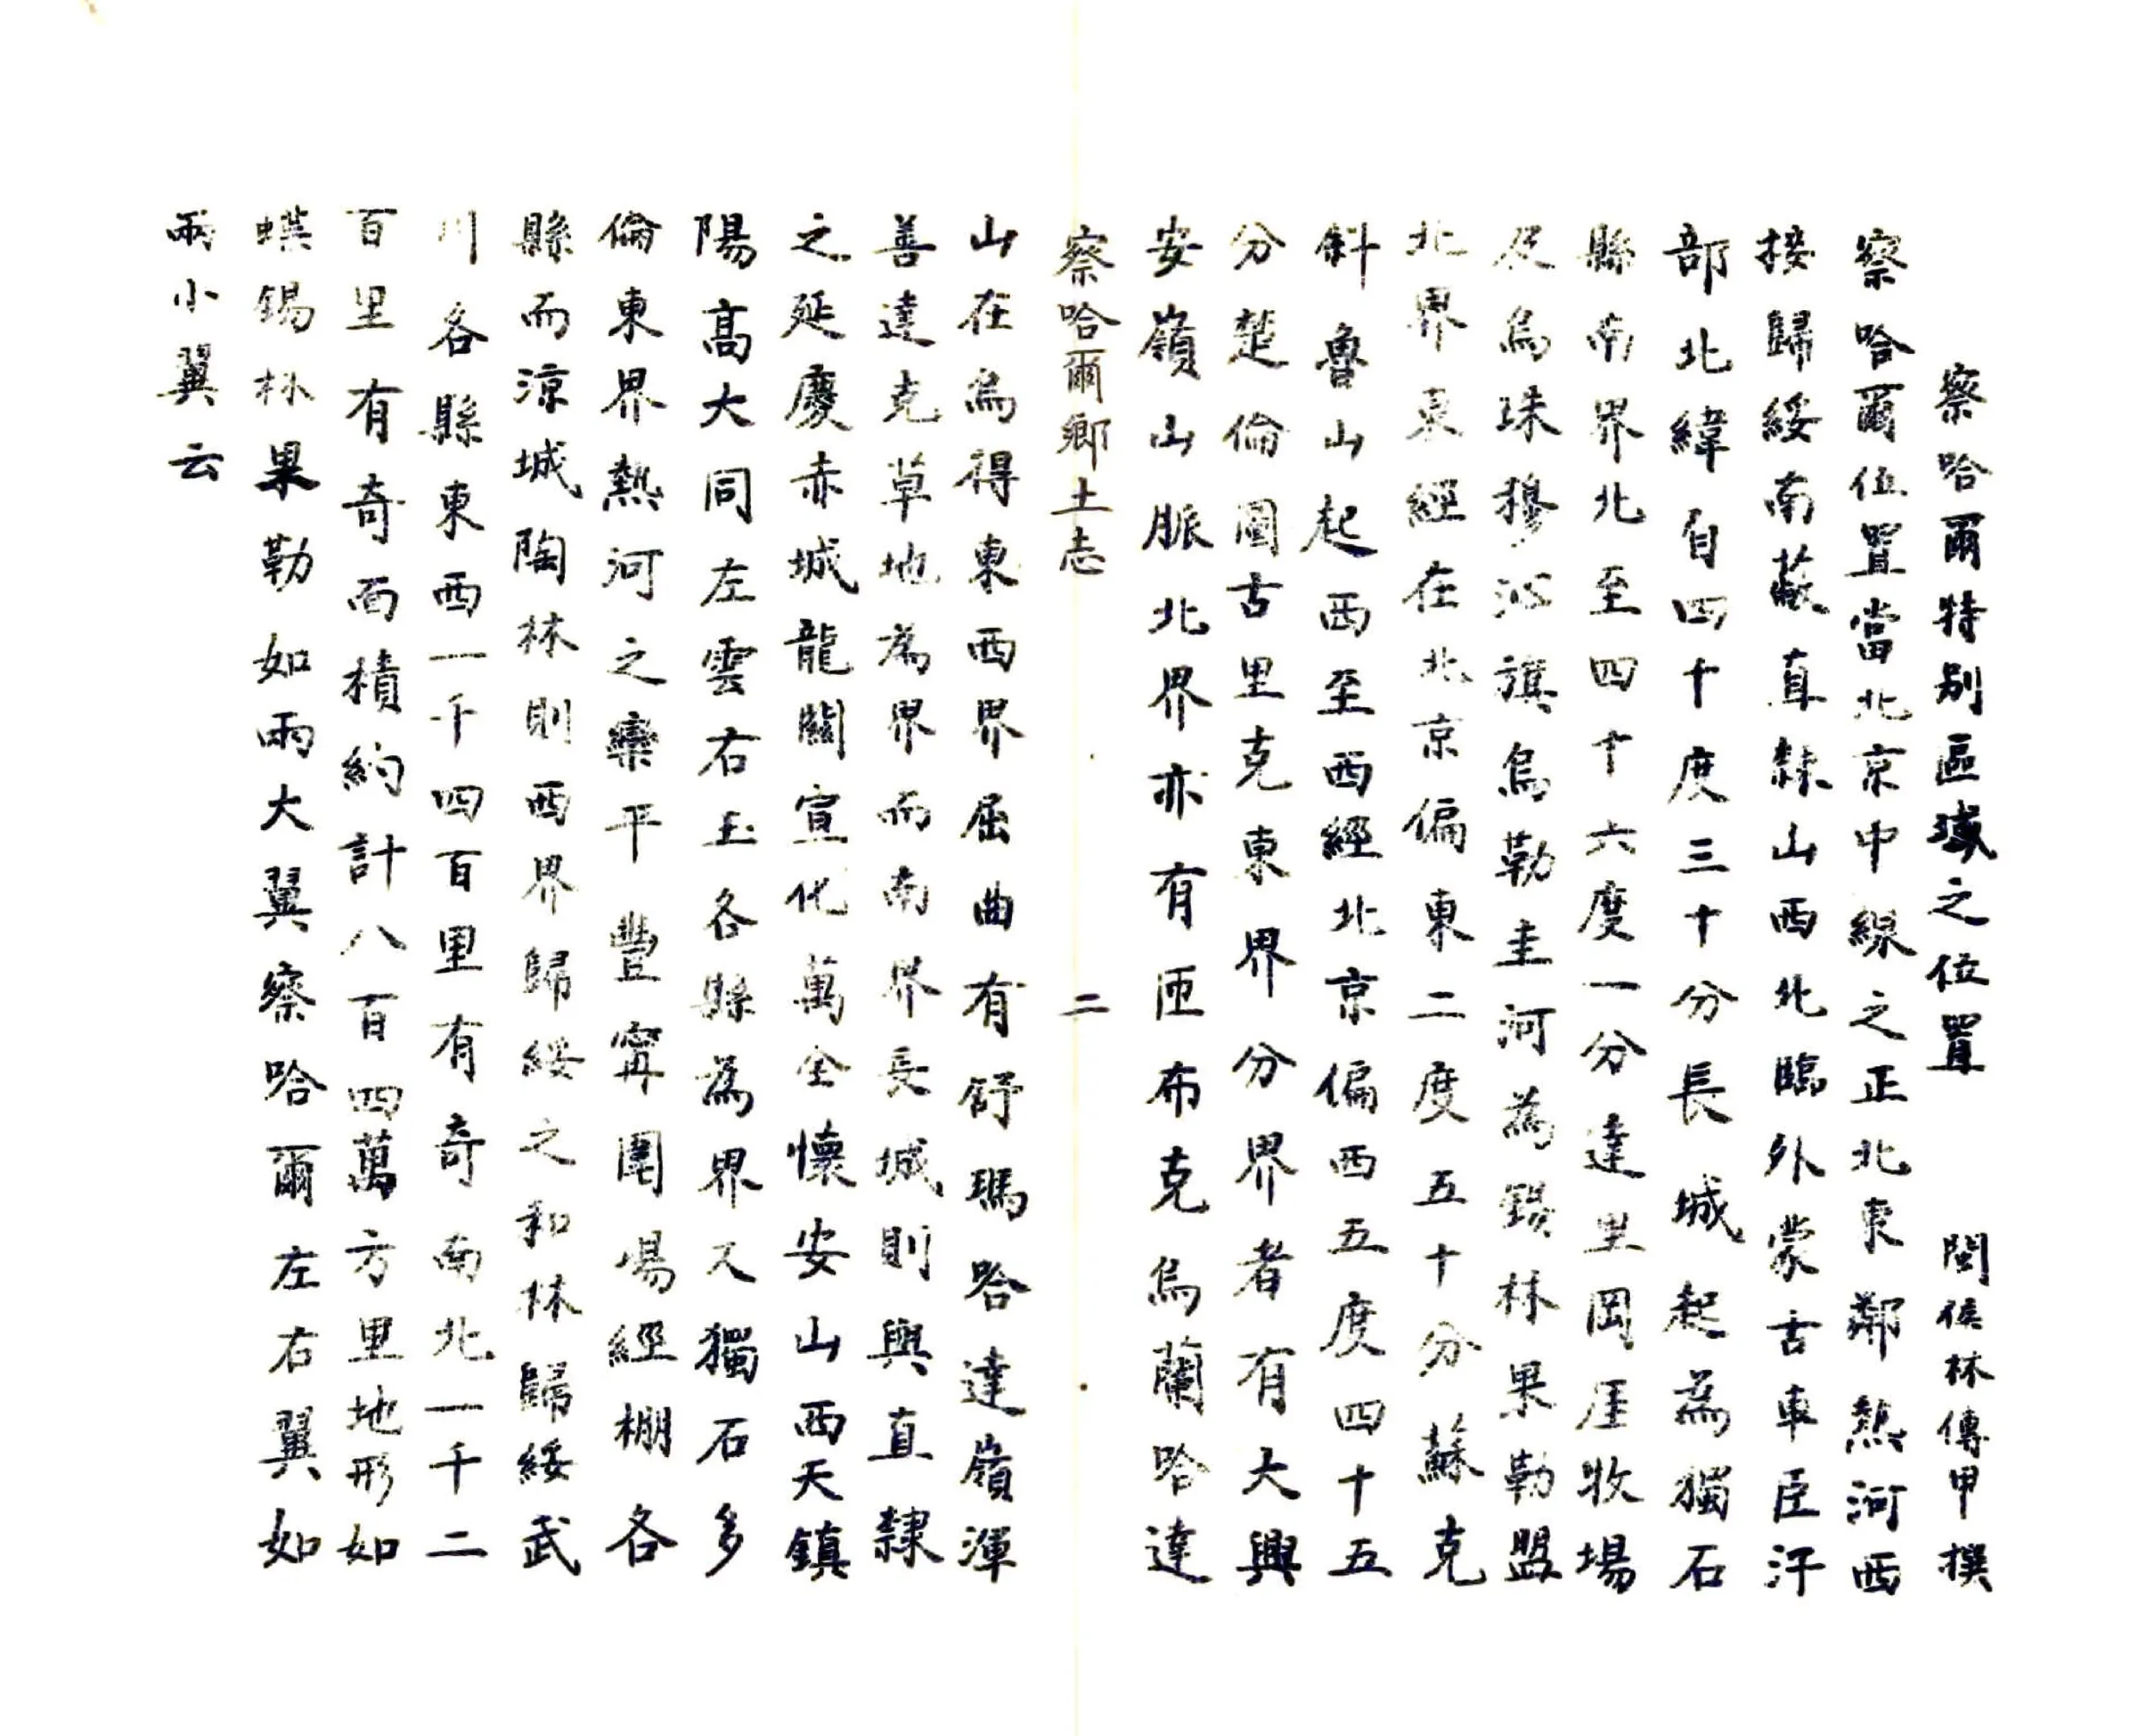 察哈爾特別區域之位置 閩侯林傳甲撰
察哈爾位置當北京中線之正北東鄰熱河西
接歸綏南蔽直隸山西北臨外蒙古車臣汗
部北緯自四十度三十分長城起為獨石
縣南界北至四十六度一分達里岡厓牧場
及烏珠穆沁旗烏勒圭河為錫林果勒盟
北界東經在北京偏東二度五十分蘇克
斜魯山起西至西經北京偏西五度四十五
分楚倫圖古里克東界分界者有大興
安嶺山脈北界亦有匝布克烏蘭哈達
察哈爾鄉土志 二
山在烏得東西界屈曲有舒瑪哈達嶺渾
善達克草地為界而南界長城則與直隸
之延慶赤城龍關宣化萬全懷安山西天鎮
陽高大同左雲右玉各縣為界又獨石多
倫東界熱河之灤平豐甯圍場經棚各
縣而涼城陶林則西界歸綏之和林歸綏武
川各縣東西一千四百里有奇南北一千二
百里有奇面積約計八百四萬方里地形如
蝶錫林果勒如兩大翼察哈爾左右翼如
兩小翼云